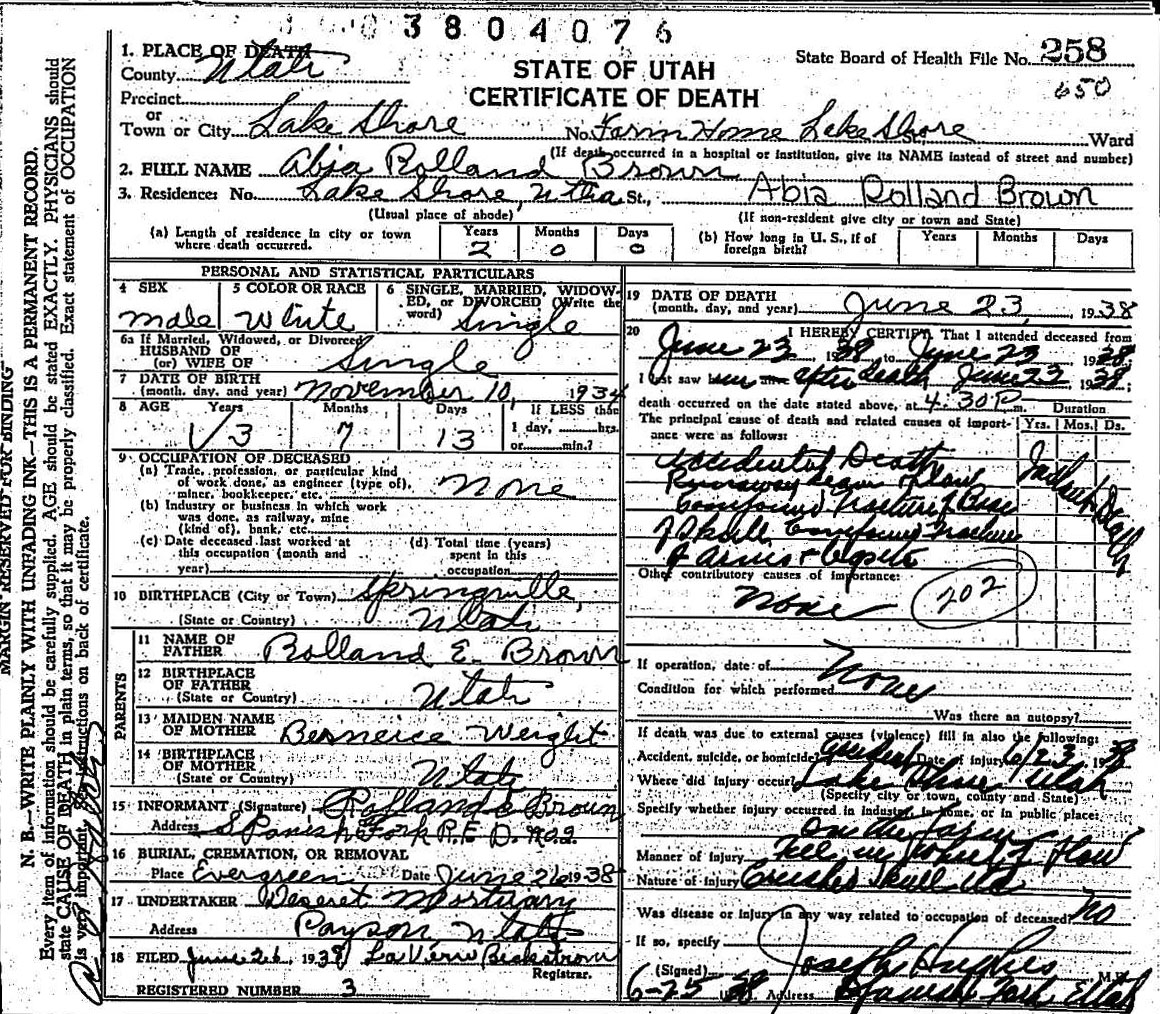 3804076
1. PLACE OF DEATH
County Utah
STATE OF UTAH
CERTIFICATE OF DEATH
State Board of Health File No. 258
650
Precinct
or
Town or City Lake Shore No. Farm Home Lake Shore Ward
(If death occurred in a hospital or institution, give its NAME instead of street and number)
2. FULL NAME Abia Rolland Brown
3. Residence: No. Lake Shore, Utha St., Abia Rolland Brown
(Usual place of abode) (If non-resident give city or town and State)
(a) Length of residence in city or town where death occurred. Years 2 Months 0 Days 0
(b) How long in U. S., if of foreign birth? Years Months Days
PERSONAL AND STATISTICAL PARTICULARS
4 SEX male
5 COLOR OR RACE White
6 SINGLE, MARRIED, WIDOWED, or DIVORCED (Write the word) Single
6a If Married, Widowed, or Divorced
HUSBAND OF
(or) WIFE OF Single
7 DATE OF BIRTH
(month, day, and year) November 10, 1934
8 AGE Years 3 Months 7 Days 13 If LESS than 1 day, hrs. or min.?
9 OCCUPATION OF DECEASED
(a) Trade, profession, or particular kind
of work done, as engineer (type of),
miner, bookkeeper, etc. None
(b) Industry or business in which work
was done, as railway, mine
(kind of), bank, etc.
(c) Date deceased last worked at
this occupation (month and
year)
(d) Total time (years)
spent in this
occupation
10 BIRTHPLACE (City or Town) Springville,
(State or Country) Utah
PARENTS
11 NAME OF
FATHER Rolland E. Brown
12 BIRTHPLACE
OF FATHER
(State or Country) Utah
13 MAIDEN NAME
OF MOTHER Berneice Weight
14 BIRTHPLACE
OF MOTHER
(State or Country) Utah
15 INFORMANT (Signature) Rolland E Brown
Address Spanish Fork R.F.D. No.2.
16 BURIAL, CREMATION, OR REMOVAL
Place Evergreen Date June 26 1938
17 UNDERTAKER Deseret Mortuary
Address Payson, Utah
18 FILED June 26, 1938 La Vern Beckstrom
Registrar.
REGISTERED NUMBER 3
19 DATE OF DEATH
(month, day, and year) June 23, 1938
20 I HEREBY CERTIFY, That I attended deceased from
June 23 1938, to June 23 1938.
I last saw him after death June 23 1938;
death occurred on the date stated above, at 4:30 P m.
The principal cause of death and related causes of importance were as follows:
Duration
Yrs. Mos. Ds.
Accidental Death
Runaway team
Compound Fracture of Base
of Skull Compound Fracture
of Arms
Other contributory causes of importance:
None
202
If operation, date of None
Condition for which performed
Was there an autopsy?
If death was due to external causes (violence) fill in also the following:
Accident, suicide, or homicide? Accident Date of injury 6/23 1938
Where did injury occur? Lake Shore Utah
(Specify city or town, county and State)
Specify whether injury occurred in industry, in home, or in public place:
On the farm
Manner of injury Fell in wheel of plow
Nature of injury Crushed Skull
Was disease or injury in any way related to occupation of deceased? No
If so, specify
(Signed) Joseph Hughes M.D.
6-25 38 Address Spanish Fork Utah
MARGIN RESERVED FOR BINDING
N. B.—WRITE PLAINLY WITH UNFADING INK—THIS IS A PERMANENT RECORD.
Every item of information should be carefully supplied. AGE should be stated EXACTLY. PHYSICIANS should
state CAUSE OF DEATH in plain terms, so that it may be properly classified. Exact statement of OCCUPATION
is very important. See instructions on back of certificate.